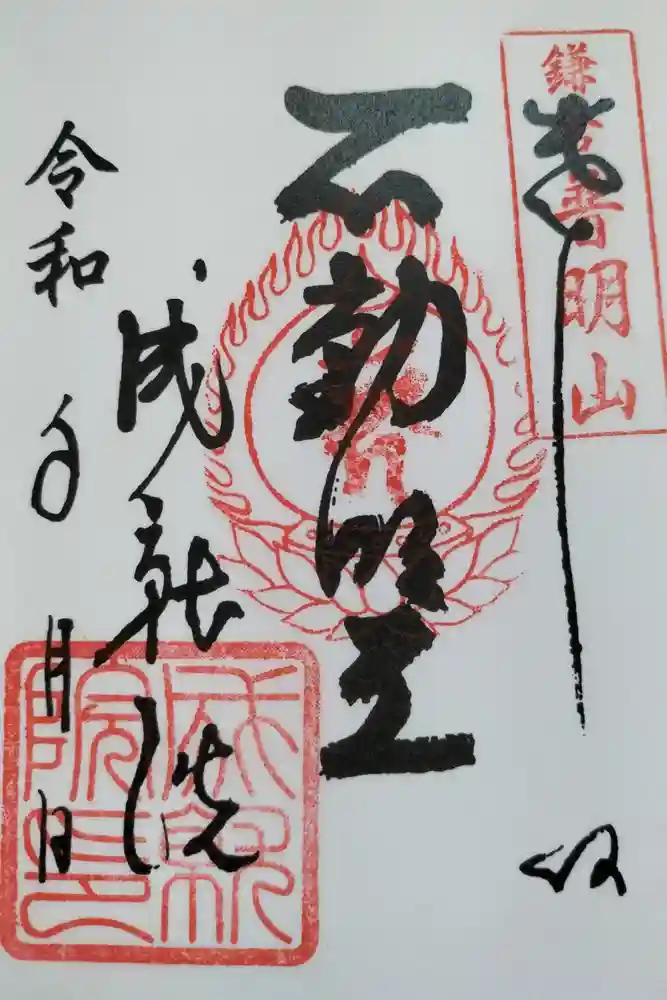 鎌倉普明山
奉拝
不動明王
成就院
令和 年 月 日
成就
院印